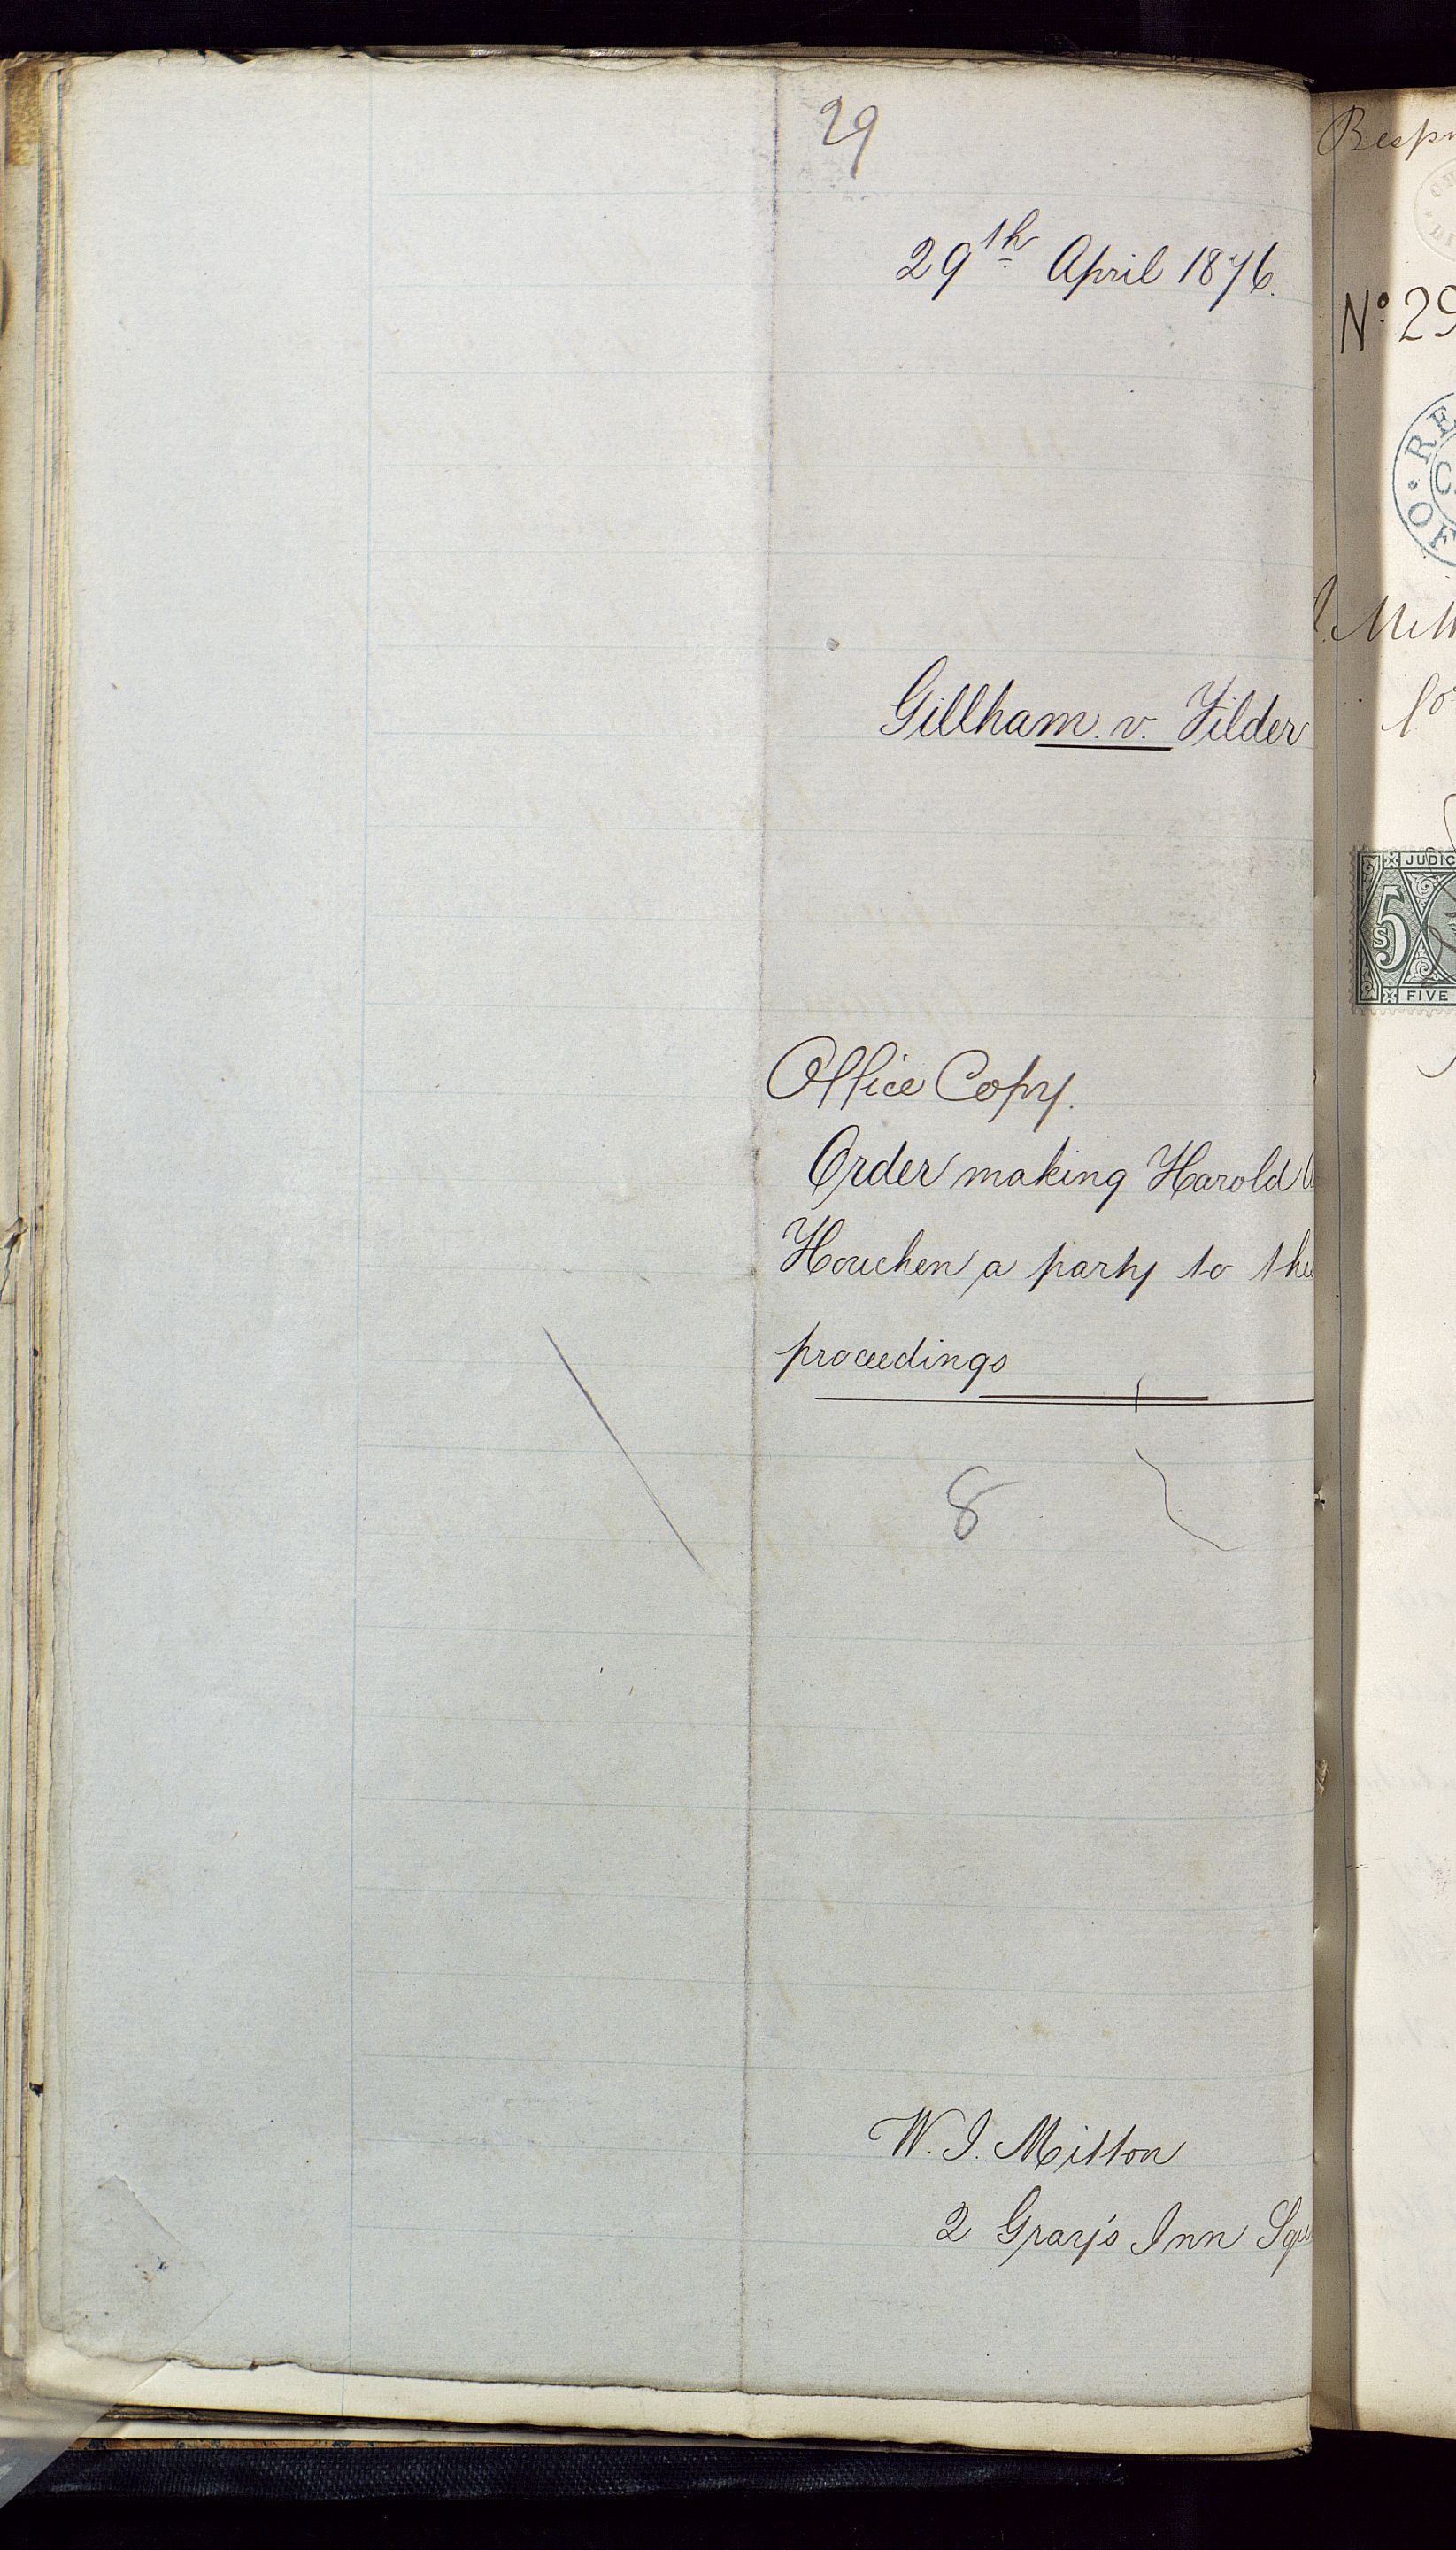 29
29th April 1876.
Gillham v. Tilder
Office Copy.
Order making Harold
Houchen a party to the
proceedings
8
W. J. Mitton
2 Gray's Inn Squ
Nº 29
JUDIC
5s
FIVE